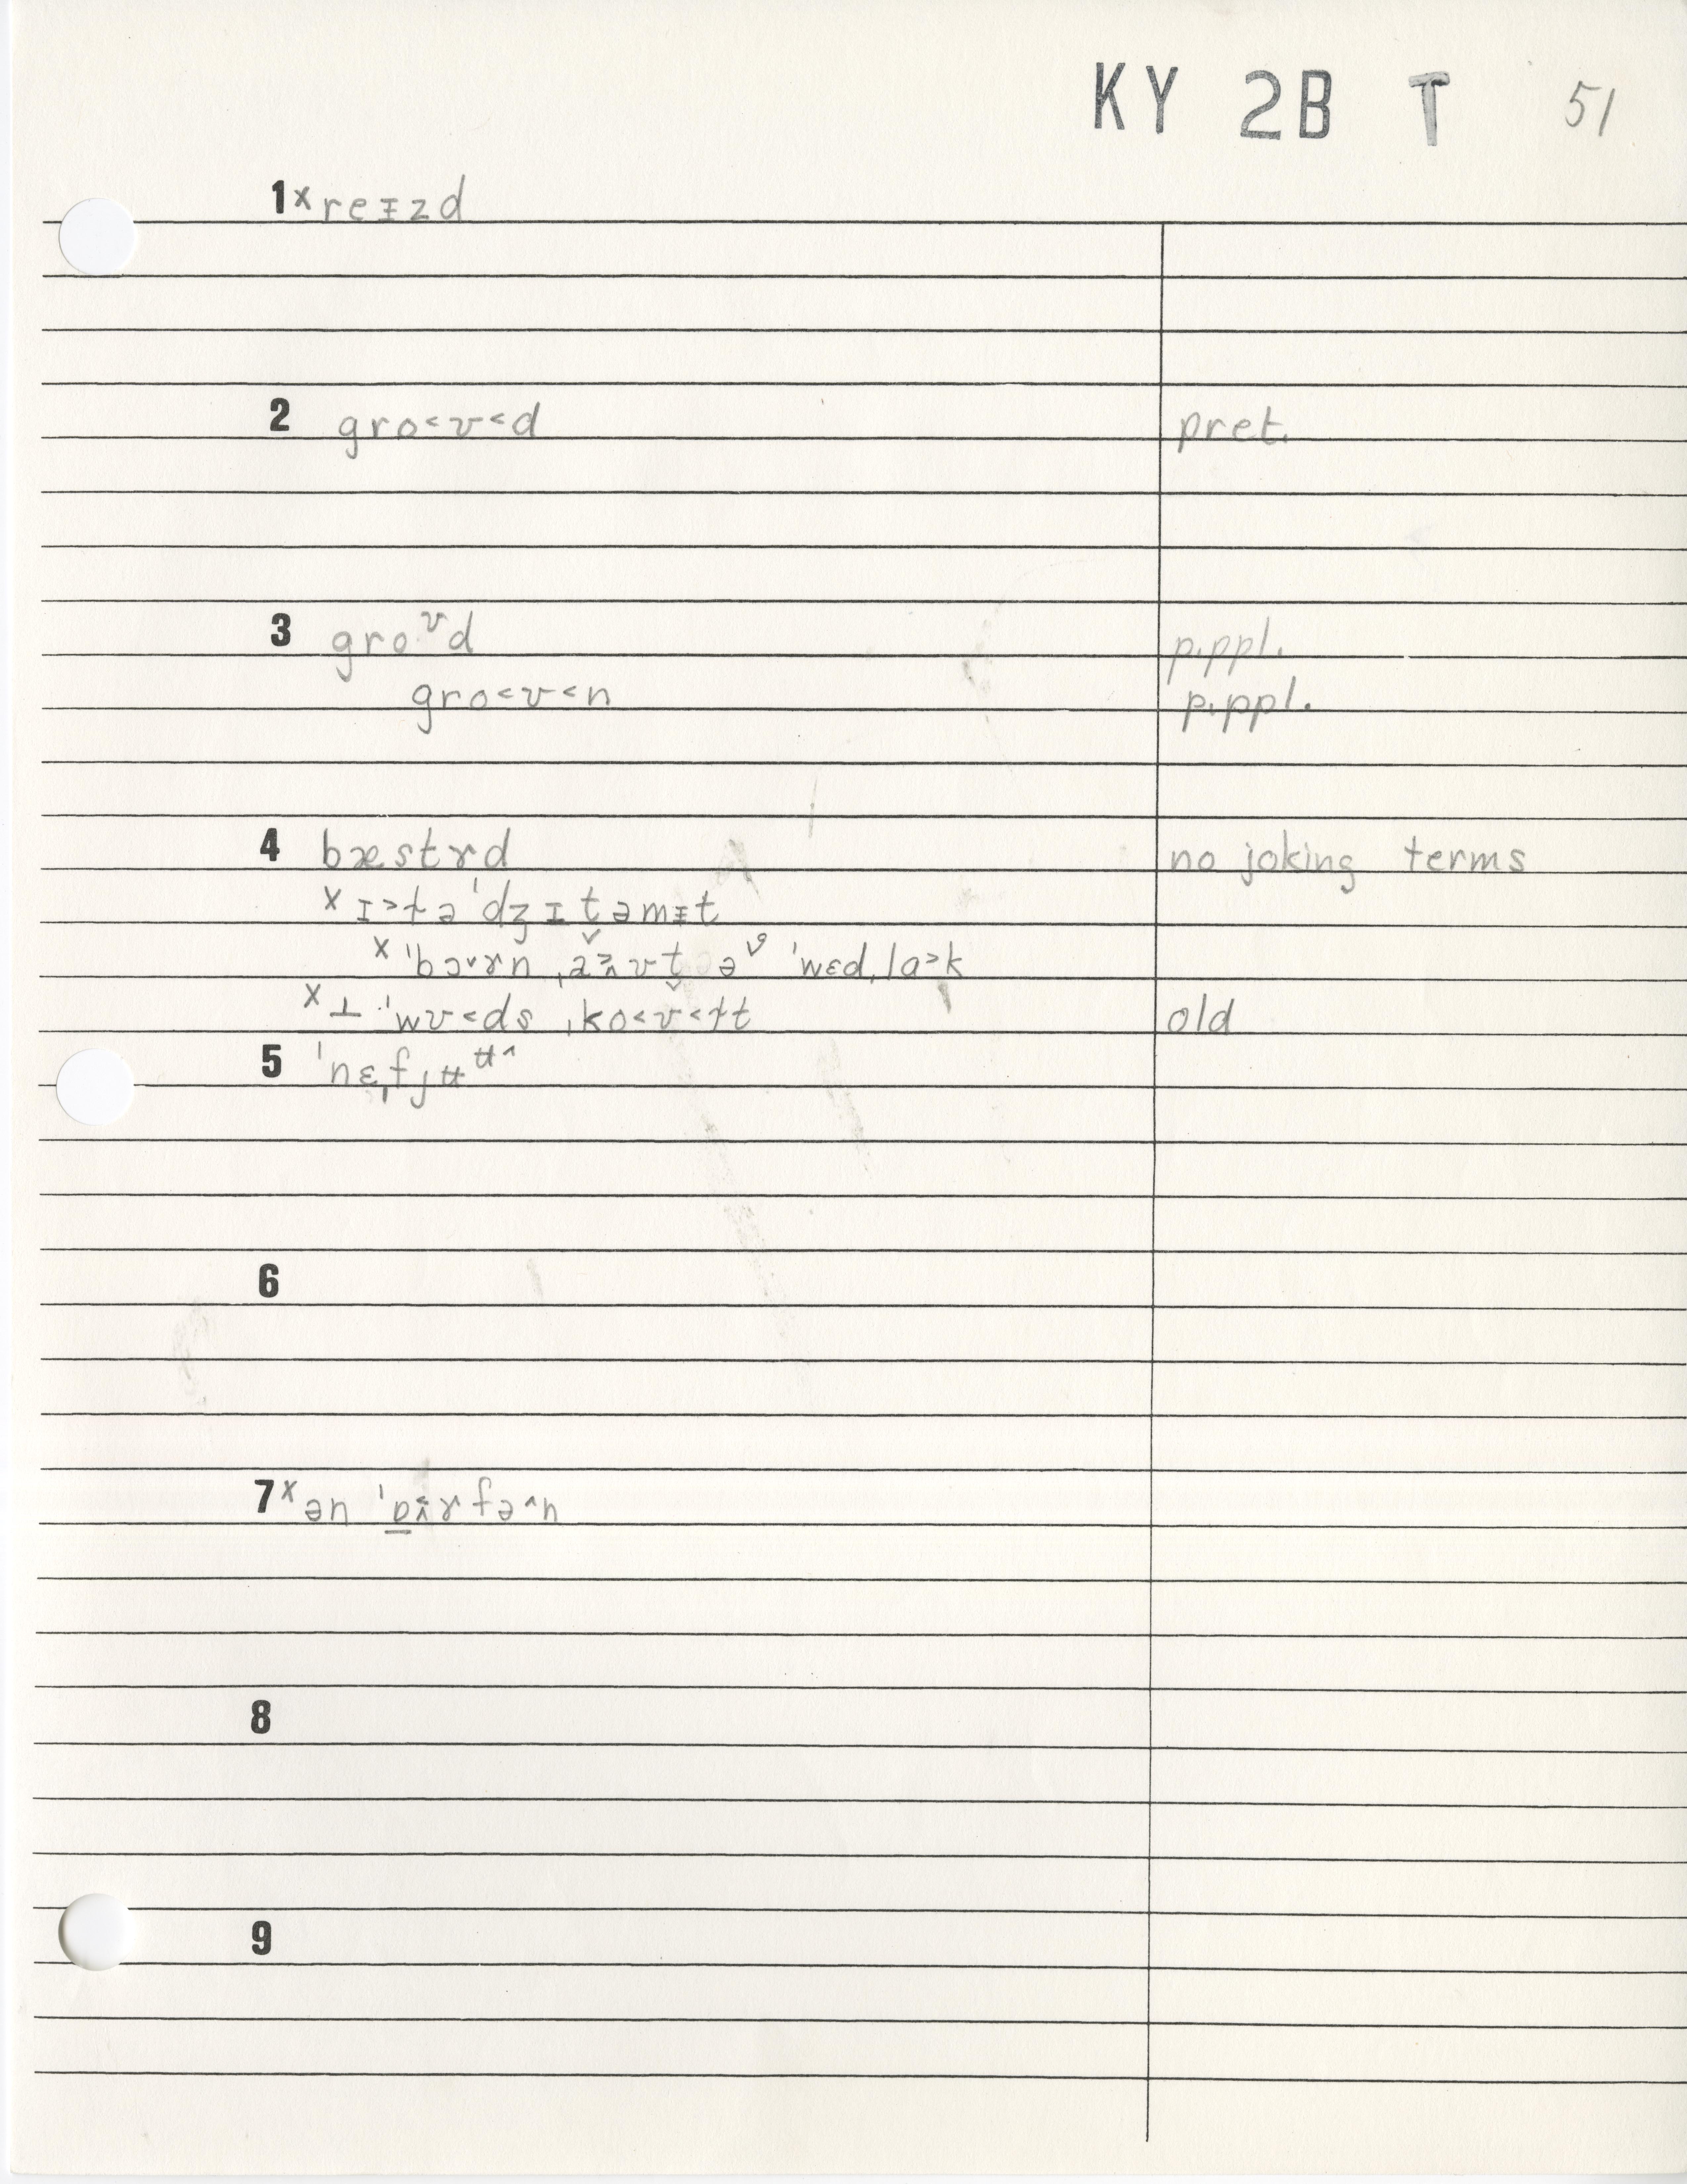 KY 2B T 51
1 ˣreɪzd
2 gro˂ʊ˂d pret.
3 groᶷd p.ppl.
gro˂ʊ˂n p.ppl.
4 bæstɤd no joking terms
ˣɪ˃ɫə ˈdʒɪt̬əmɨt
ˣ ˈbɔ˅ɤn ˌaʊt̬ ə ˈwɛdˌla˃k
ˣ⊥ ˈwʊ˂ds ˌko˂ʊ˂ɫt old
5 ˈnɛˌfjʉᶶ˄
6
7 ˣən ˈɒɤfə˄n
8
9